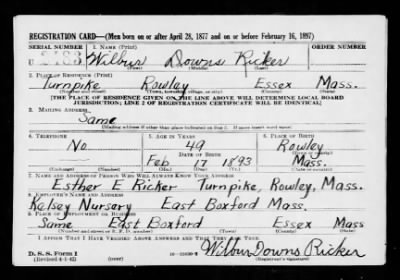 REGISTRATION CARD—(Men born on or after April 28, 1877 and on or before February 16, 1897)
SERIAL NUMBER 1. NAME (Print) ORDER NUMBER
U Wilbur Downs Ricker
(First) (Middle) (Last)
2. PLACE OF RESIDENCE (Print)
Turnpike Rowley Essex Mass.
(Number and street) (Town, township, village, or city) (County) (State)
[THE PLACE OF RESIDENCE GIVEN ON THE LINE ABOVE WILL DETERMINE LOCAL BOARD
JURISDICTION; LINE 2 OF REGISTRATION CERTIFICATE WILL BE IDENTICAL]
3. MAILING ADDRESS
Same
[Mailing address if other than place indicated on line 2. If same insert word same]
4. TELEPHONE 5. AGE IN YEARS 6. PLACE OF BIRTH
No 49 Rowley
DATE OF BIRTH (Town or county)
Feb 17 1893 Mass.
(Exchange) (Number) (Mo.) (Day) (Yr.) (State or country)
7. NAME AND ADDRESS OF PERSON WHO WILL ALWAYS KNOW YOUR ADDRESS
Esther E Ricker Turnpike, Rowley, Mass.
8. EMPLOYER'S NAME AND ADDRESS
Kelsey Nursery East Boxford Mass.
9. PLACE OF EMPLOYMENT OR BUSINESS
Same East Boxford Essex Mass
(Number and street or R. F. D. number) (Town) (County) (State)
I AFFIRM THAT I HAVE VERIFIED ABOVE ANSWERS AND THAT THEY ARE TRUE.
D. S. S. Form 1 Wilbur Downs Ricker
(Revised 4-1-42) (Registrant's signature)